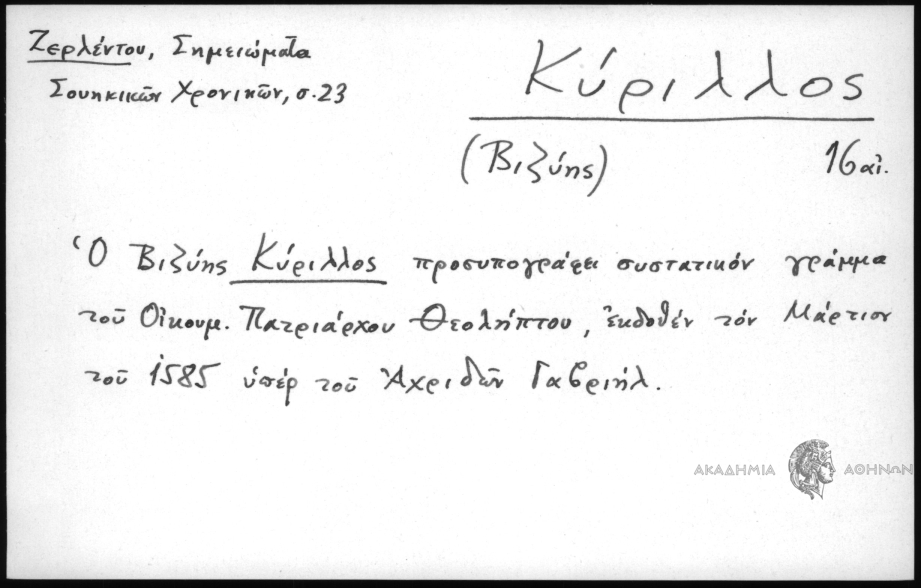 Ζερλέντου, Σημειώματα
Σουηκικῶν Χρονικῶν, σ.23
Κύριλλος
(Βιζύης) 16 αἰ.
Ὁ Βιζύης Κύριλλος προσυπογράφει συστατικόν γράμμα
τοῦ Οἰκουμ. Πατριάρχου Θεολήπτου, ἐκδοθέν τόν Μάρτιον
τοῦ 1585 ὑπέρ τοῦ Ἀχριδῶν Γαβριήλ.
ΑΚΑΔΗΜΙΑ ΑΘΗΝΩΝ